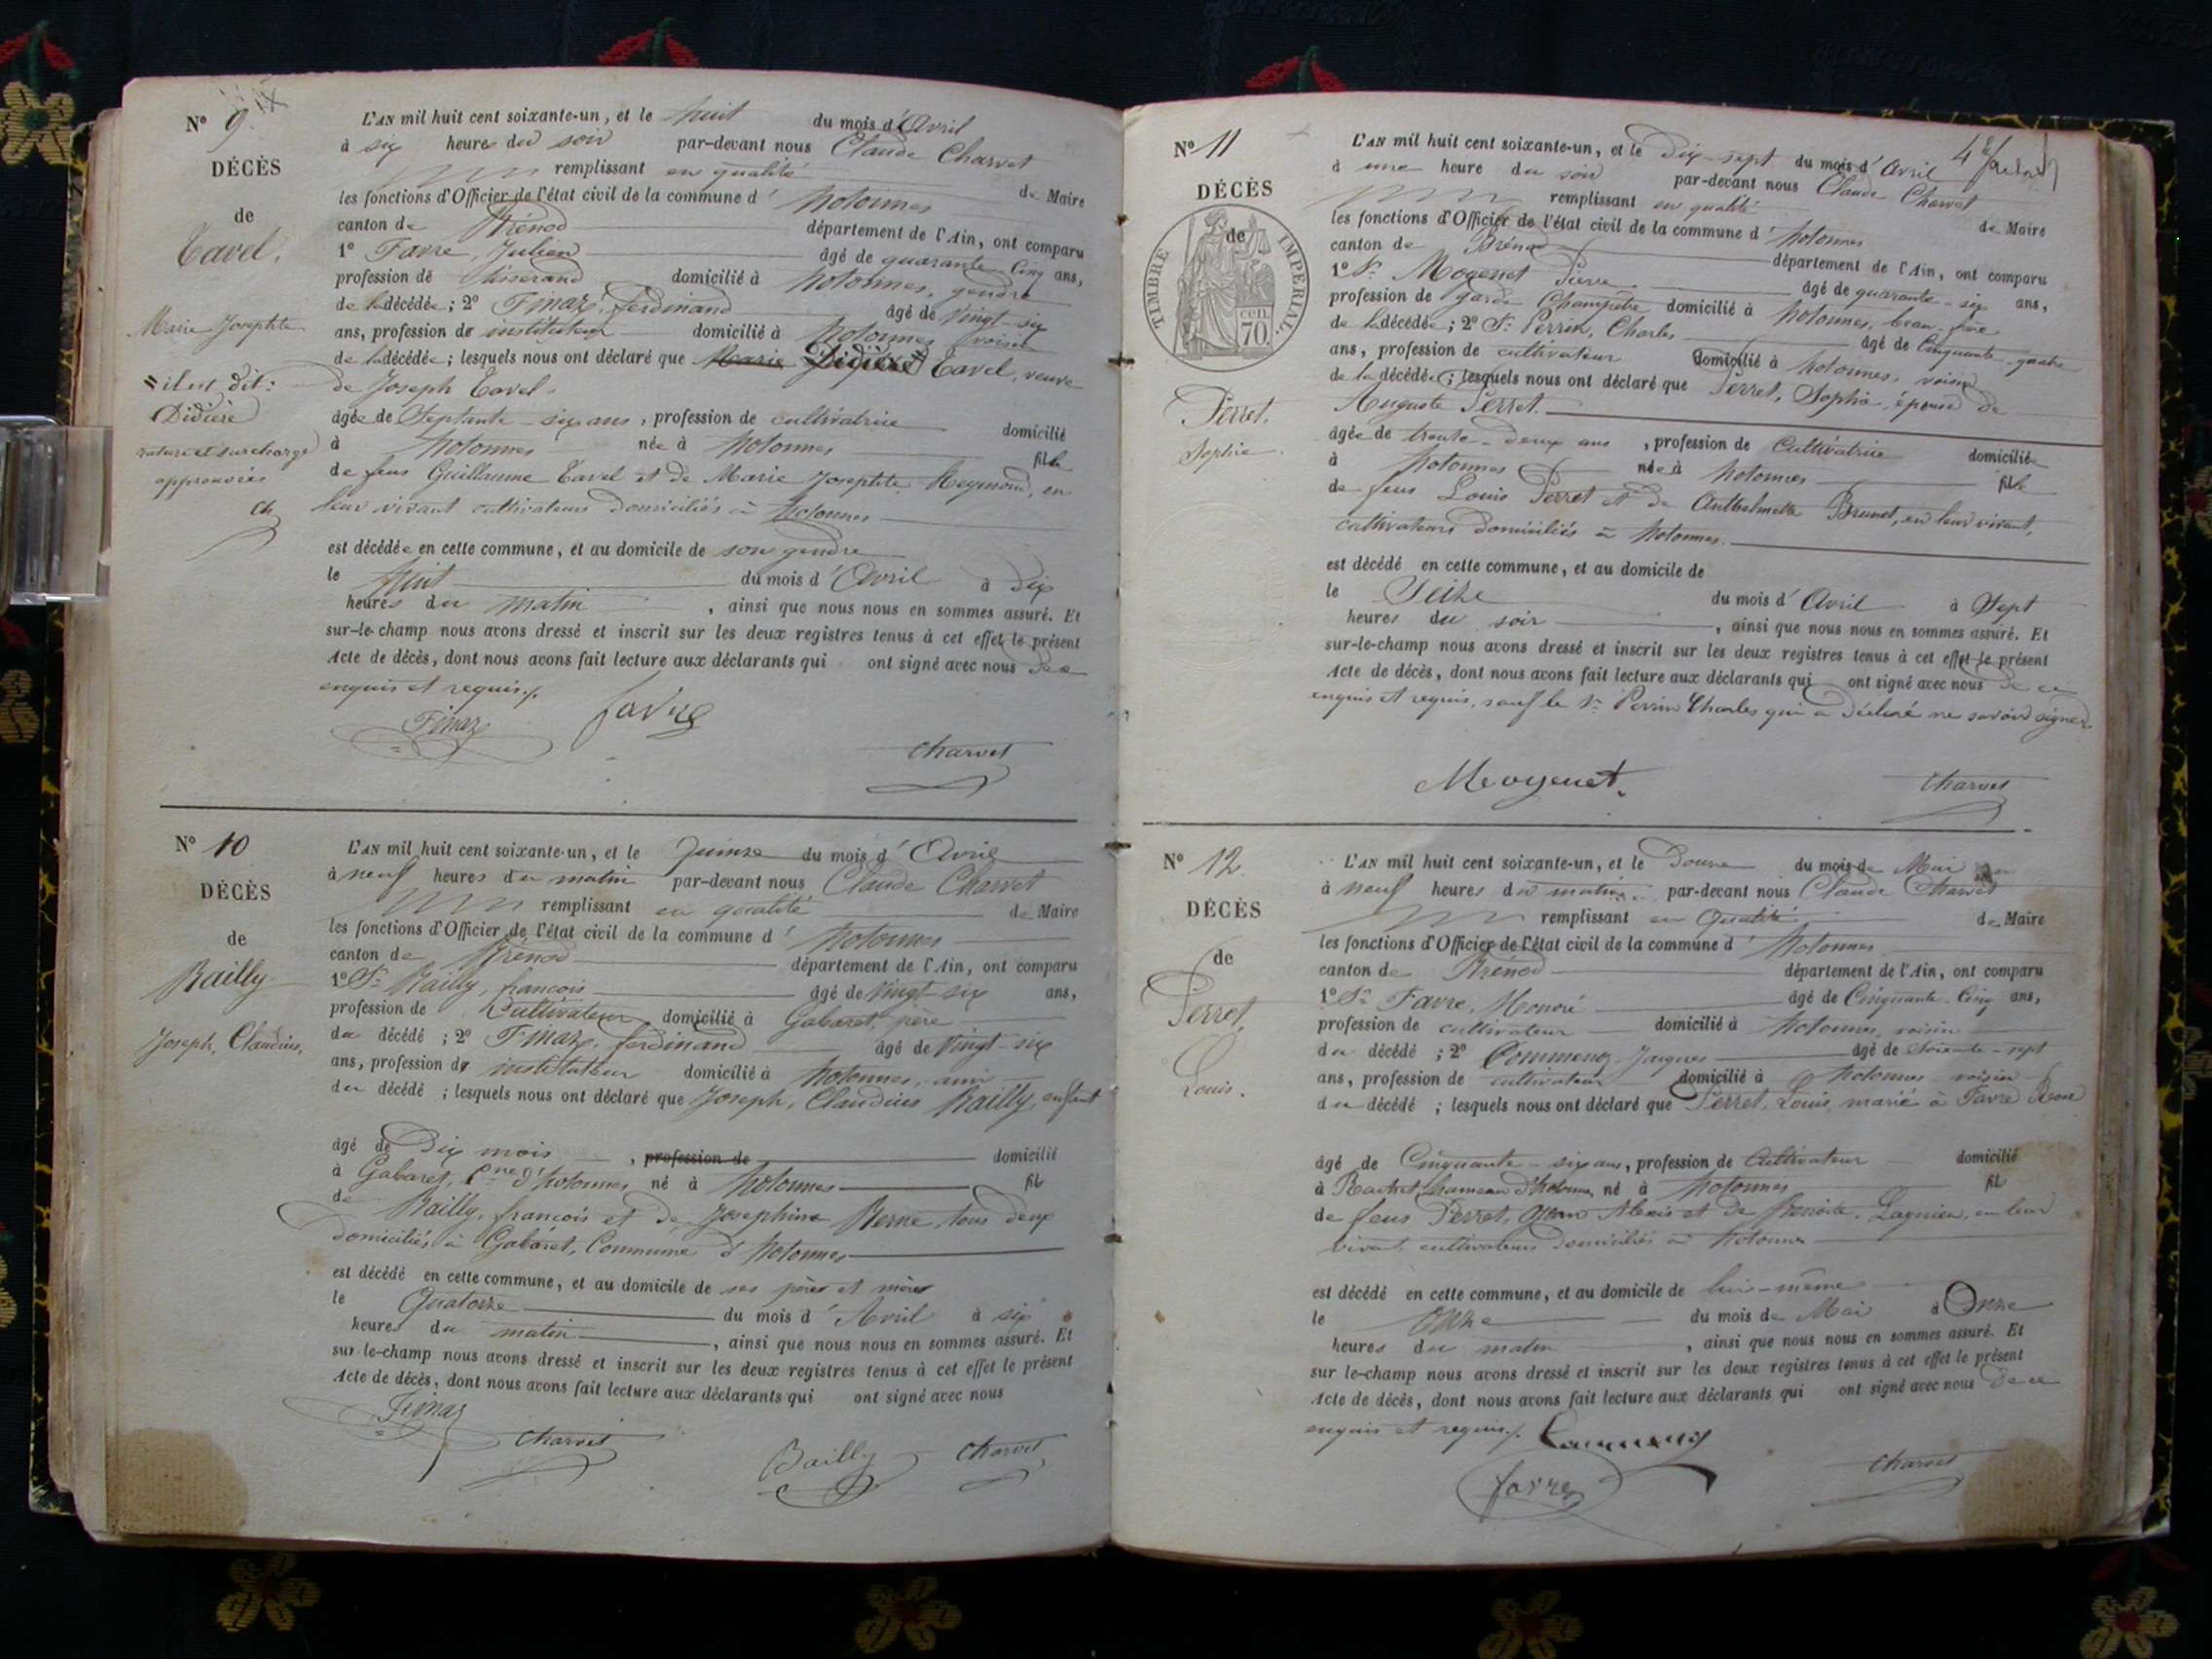 N° 9
DÉCÈS
de
Tavel,
Marie Josephte
= il est dit:
Didière
rature et surcharge
approuvées
Ch
L'AN mil huit cent soixante-un, et le huit du mois d'Avril
à six heures du soir par-devant nous Claude Charvet
remplissant en qualité de Maire
les fonctions d'Officier de l'état civil de la commune d' hotonnes
canton de Brénod département de l'Ain, ont comparu
1° Favre, Julien âgé de quarante-Cinq ans,
profession de tisserand domicilié à hotonnes, gendre
de la décédée; 2° Finaz, ferdinand âgé de Vingt-six
ans, profession de instituteur domicilié à hotonnes voisin
de la décédée; lesquels nous ont déclaré que Marie Didière = Tavel, veuve
de Joseph Tavel.
âgée de Septante-six ans, profession de cultivatrice domicilié
à hotonnes née à hotonnes fille
de feus Guillaume Tavel et de Marie Josephte Reymond, en
leur vivant cultivateurs domiciliés à hotonnes
est décédée en cette commune, et au domicile de son gendre
le huit du mois d'Avril à Dix
heures du matin, ainsi que nous nous en sommes assuré. Et
sur-le-champ nous avons dressé et inscrit sur les deux registres tenus à cet effet le présent
Acte de décès, dont nous avons fait lecture aux déclarants qui ont signé avec nous de ce
enquis et requis./.
Finaz favre
Charvet
N° 10
DÉCÈS
de
Bailly
Joseph, Claudius,
L'AN mil huit cent soixante-un, et le Quinze du mois d'Avril
à neuf heures du matin par-devant nous Claude Charvet
remplissant en qualité de Maire
les fonctions d'Officier de l'état civil de la commune d' hotonnes
canton de Brénod département de l'Ain, ont comparu
1° Sr Bailly, francois âgé de Vingt-six ans,
profession de Cultivateur domicilié à Gabaret, père
du décédé; 2° Finaz, ferdinand âgé de Vingt-six
ans, profession de instituteur domicilié à hotonnes, ami
du décédé; lesquels nous ont déclaré que Joseph, Claudius Bailly, enfant
âgé de Dix mois, profession de domicilié
à Gabaret, Cne d'hotonnes, né à hotonnes fils
de Bailly, francois et de Josephine Berne, tous deux
domiciliés à Gabaret, Commune d'hotonnes
est décédé en cette commune, et au domicile de ses père et mère
le Quatorze du mois d'Avril à six
heures du matin, ainsi que nous nous en sommes assuré. Et
sur-le-champ nous avons dressé et inscrit sur les deux registres tenus à cet effet le présent
Acte de décès, dont nous avons fait lecture aux déclarants qui ont signé avec nous
Finaz Charvet Bailly Charvet
N° 11
DÉCÈS
de
TIMBRE IMPÉRIAL.
70 cen
Perret,
Sophie
4e
L'AN mil huit cent soixante-un, et le Dix-sept du mois d'Avril
à une heure du soir par-devant nous Claude Charvet
remplissant en qualité de Maire
les fonctions d'Officier de l'état civil de la commune d' hotonnes
canton de Brénod département de l'Ain, ont comparu
1° Sr Moyenet Pierre âgé de quarante-six ans,
profession de garde Champêtre domicilié à hotonnes, beau-frère
de la décédée; 2° Sr Perrin, Charles âgé de Cinquante-quatre
ans, profession de cultivateur domicilié à hotonnes, voisin
de la décédée; lesquels nous ont déclaré que Perret, Sophie, épouse de
Auguste Perret.
âgée de trente-deux ans, profession de Cultivatrice domiciliée
à hotonnes née à hotonnes fille
de feus Louis Perret et de Anthelmette Brunet, en leur vivant,
cultivateurs domiciliés à hotonnes.
est décédé en cette commune, et au domicile de
le Seize du mois d'Avril à Sept
heures du soir, ainsi que nous nous en sommes assuré. Et
sur-le-champ nous avons dressé et inscrit sur les deux registres tenus à cet effet le présent
Acte de décès, dont nous avons fait lecture aux déclarants qui ont signé avec nous de ce
enquis et requis, sauf le Sr Perrin Charles qui a déclaré ne savoir signer.
Moyenet. Charvet
N° 12
DÉCÈS
de
Perret,
Louis.
L'AN mil huit cent soixante-un, et le Douze du mois de Mai
à neuf heures du matin par-devant nous Claude Charvet
remplissant en Qualité de Maire
les fonctions d'Officier de l'état civil de la commune d' hotonnes
canton de Brénod département de l'Ain, ont comparu
1° Sr Favre, Honoré âgé de Cinquante-Cinq ans,
profession de cultivateur domicilié à hotonnes, voisin
du décédé; 2° Commenoz Jacques âgé de Soixante-sept
ans, profession de cultivateur domicilié à hotonnes voisin
du décédé; lesquels nous ont déclaré que Perret, Louis, marié à Favre Rose
âgé de Cinquante-six ans, profession de Cultivateur domicilié
à hameau d'hotonnes, né à hotonnes fils
de feus Perret, Alexis et de Benoite Lagnieu, en leur
vivant cultivateurs domiciliés à hotonnes
est décédé en cette commune, et au domicile de lui-même
le Onze du mois de Mai à Onze
heures du matin, ainsi que nous nous en sommes assuré. Et
sur le-champ nous avons dressé et inscrit sur les deux registres tenus à cet effet le présent
Acte de décès, dont nous avons fait lecture aux déclarants qui ont signé avec nous de ce
enquis et requis./.
favre Charvet